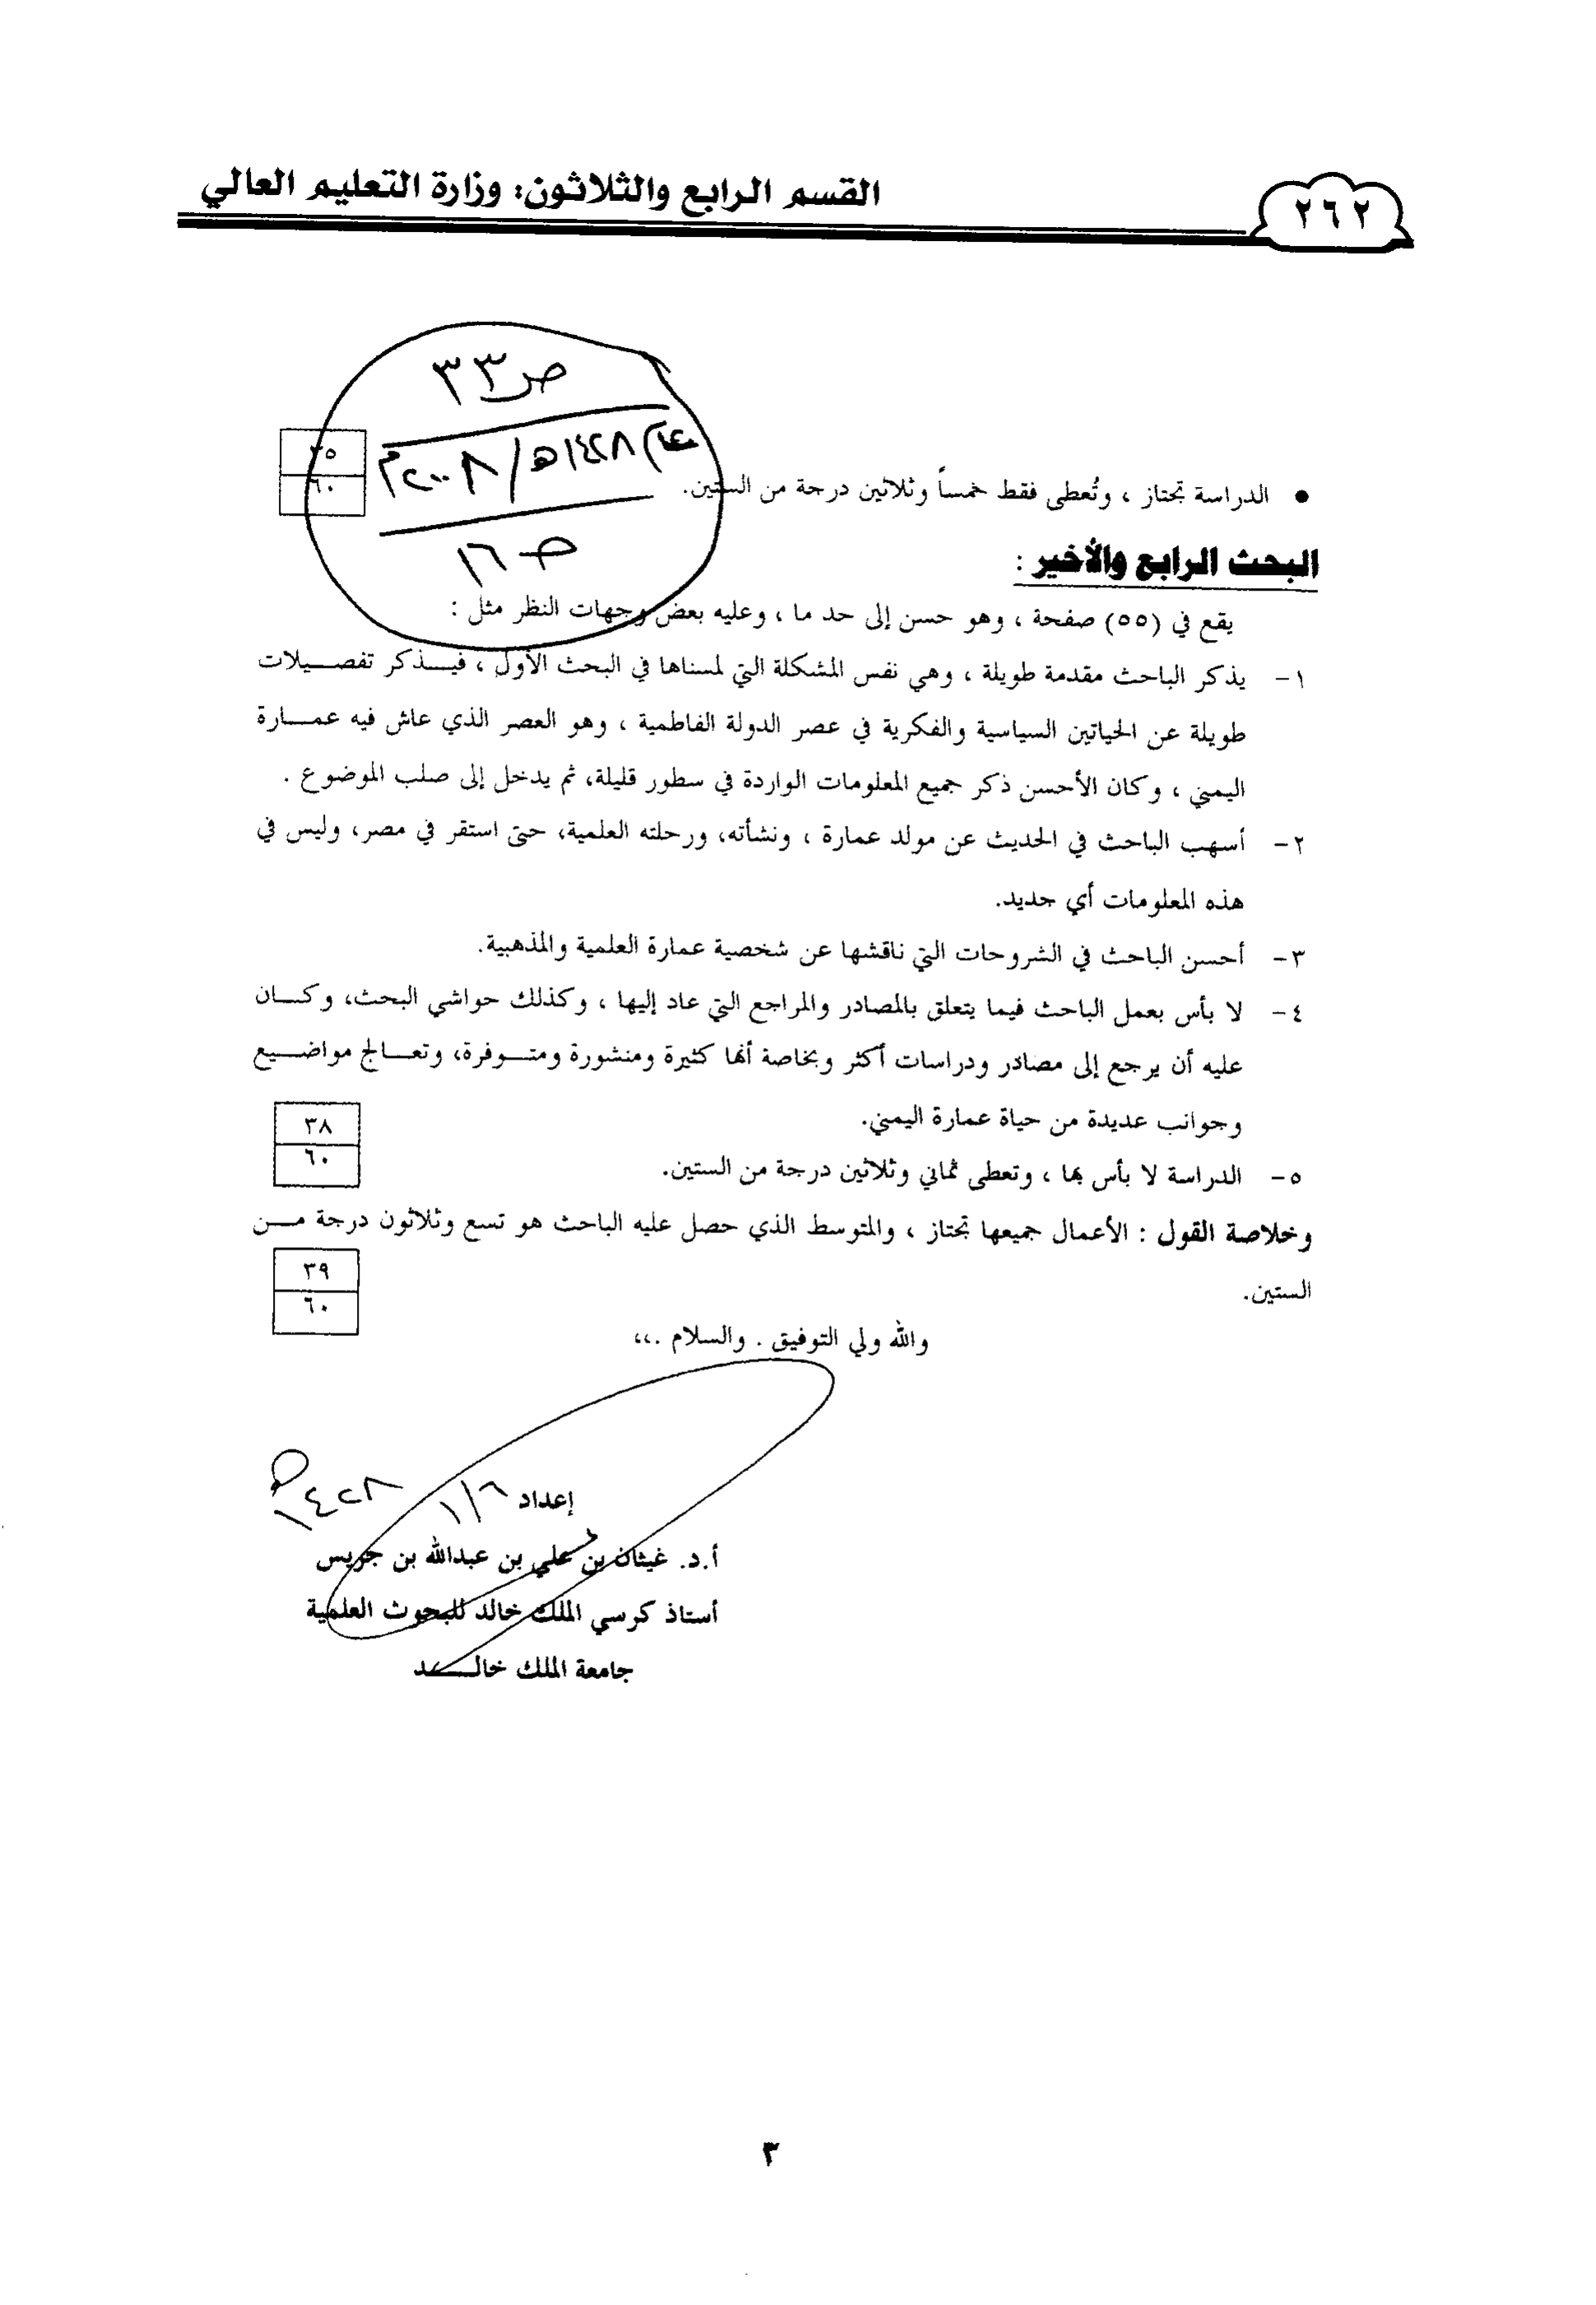 ٢٦٢
القسم الرابع والثلاثون: وزارة التعليم العالي
ص ٣٣
عام ١٤٢٨هـ/٢٠٠٨م
ص ١٦
٣٥
٦٠
● الدراسة تجتاز ، وتُعطى فقط خمساً وثلاثين درجة من الستين.
البحث الرابع والأخير :
يقع في (٥٥) صفحة ، وهو حسن إلى حد ما ، وعليه بعض وجهات النظر مثل :
١- يذكر الباحث مقدمة طويلة ، وهي نفس المشكلة التي لمسناها في البحث الأول ، فيـــذكر تفصـــيلات
طويلة عن الحياتين السياسية والفكرية في عصر الدولة الفاطمية ، وهو العصر الذي عاش فيه عمـــارة
اليمني ، وكان الأحسن ذكر جميع المعلومات الواردة في سطور قليلة، ثم يدخل إلى صلب الموضوع .
٢- أسهب الباحث في الحديث عن مولد عمارة ، ونشأته، ورحلته العلمية، حتى استقر في مصر، وليس في
هذه المعلومات أي جديد.
٣- أحسن الباحث في الشروحات التي ناقشها عن شخصية عمارة العلمية والمذهبية.
٤- لا بأس بعمل الباحث فيما يتعلق بالمصادر والمراجع التي عاد إليها ، وكذلك حواشي البحث، وكـــان
عليه أن يرجع إلى مصادر ودراسات أكثر وبخاصة أنها كثيرة ومنشورة ومتـــوفرة، وتعـــالج مواضـــيع
وجوانب عديدة من حياة عمارة اليمني.
٣٨
٦٠
٥- الدراسة لا بأس بها ، وتعطى ثماني وثلاثين درجة من الستين.
وخلاصة القول : الأعمال جميعها تجتاز ، والمتوسط الذي حصل عليه الباحث هو تسع وثلاثون درجة مـــن
الستين.
٣٩
٦٠
والله ولي التوفيق . والسلام ،،.
إعداد ١/٦ ١٤٢٨هـ
أ.د. غيثان بن علي بن عبدالله بن جريس
أستاذ كرسي الملك خالد للبحوث العلمية
جامعة الملك خالـــد
٣